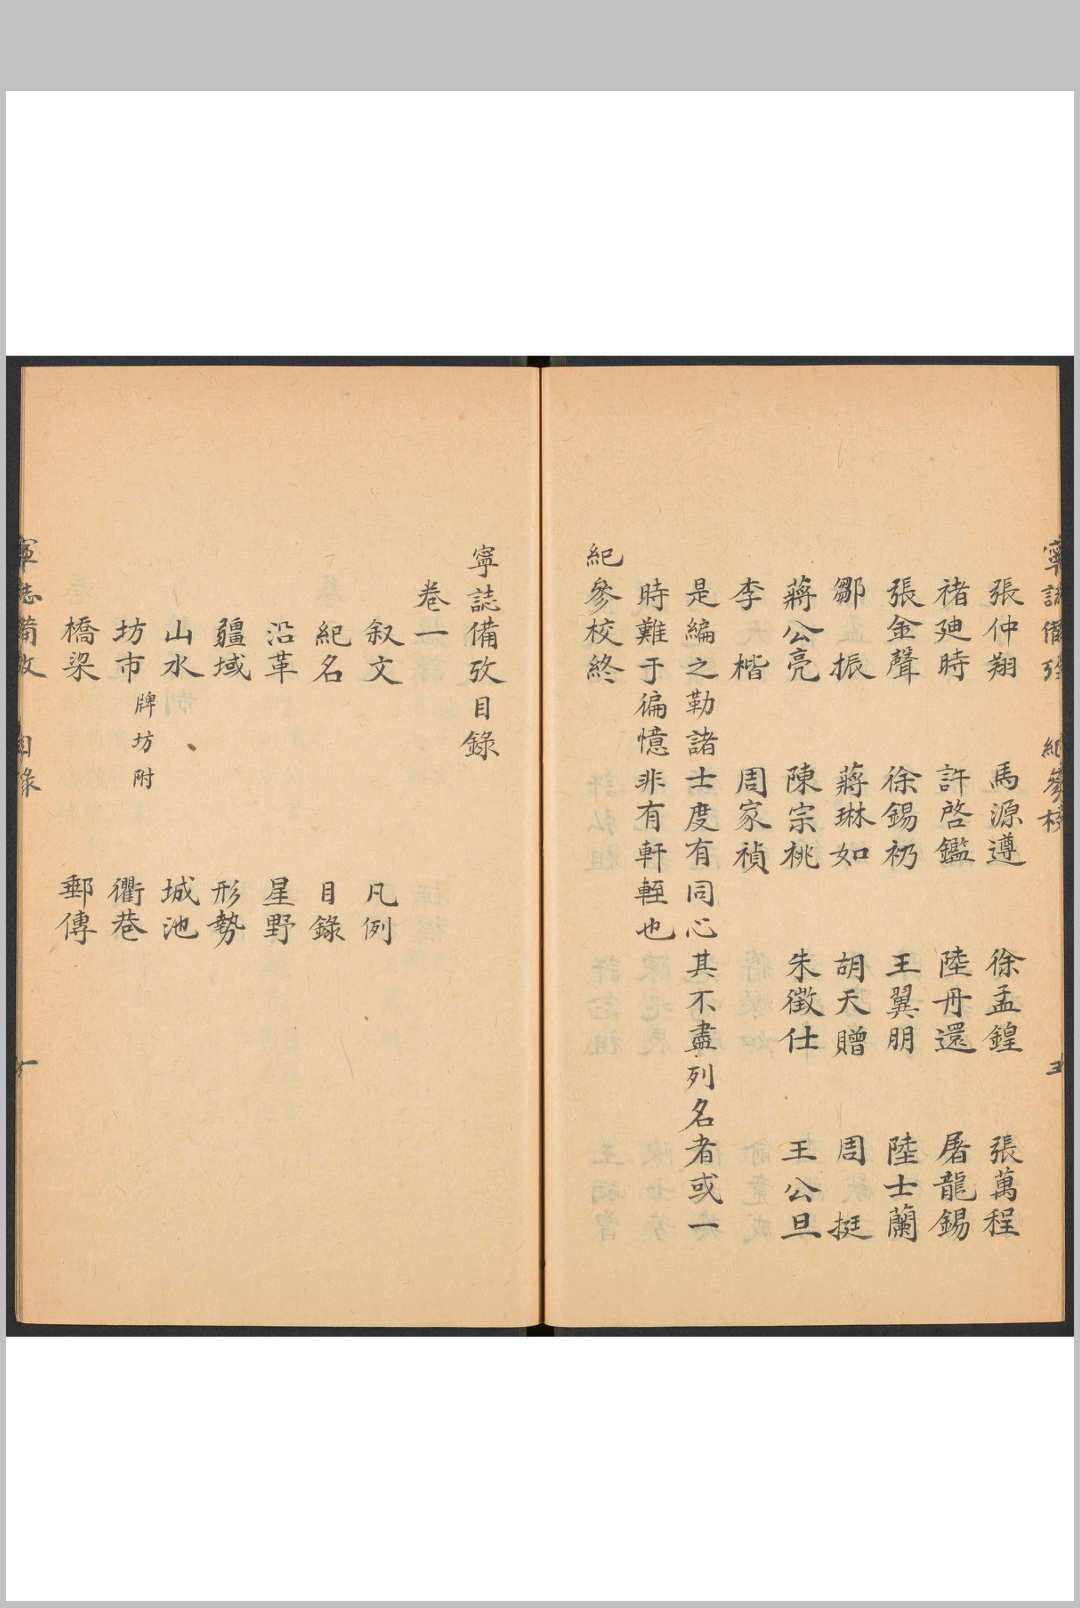 寧誌備攷 紀參校 五
張仲翔 馬源遵 徐孟鍠 張萬程
褚廸時 許啓鑑 陸丹還 屠龍錫
張金聲 徐錫礽 王翼朋 陸士蘭
鄒振 蔣琳如 胡天贈 周挺
蔣公亮 陳宗桃 朱徵仕 王公旦
李楷 周家禎
是編之勒諸士度有同心其不盡列名者或一
時難于徧憶非有軒輊也
紀參校終
寧誌備攷目錄
卷一
叙文 凡例
紀名 目錄
沿革 星野
疆域 形勢
山水 城池
坊市 牌坊附 衢巷
橋梁 郵傳
寧誌備攷 目錄